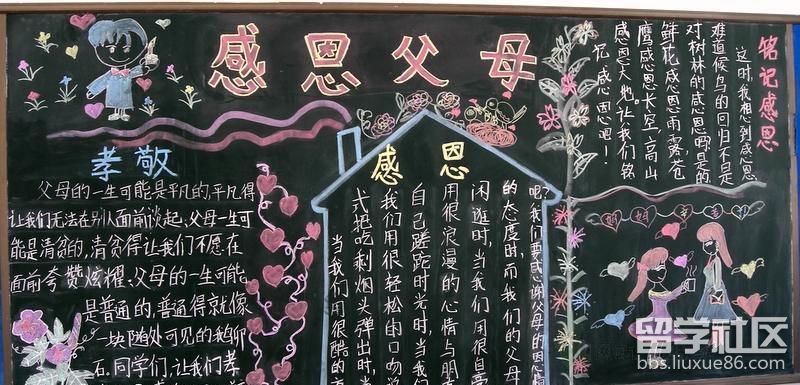 感恩父母
孝敬
父母的一生可能是平凡的,平凡得
让我们无法在别人面前谈起;父母一生可
能是清贫的,清贫得让我们不愿在
面前夸赞炫耀;父母的一生可能
是普通的,普通得就像
一块随处可见的我卵
石.同学们,让我们孝
感恩
呢?我们要感谢父母的因恩
的态度时,而我们的父母
闲逛时,当我们用很自
用很浪漫的心情与朋
自己蹉跎时光时,当我们
我们用很轻松的口吻
式把吃剩烟头弹出时,当
当我们用很酷的
铭记感恩
这时,我想到感恩
难道候鸟的回归不是
对树林的感恩嘛!是的
鲜花感恩雨露,苍
鹰感恩长空,高山
感恩大地。让我们铭
记感恩吧!
留学社区
bbs.liuxue86.com